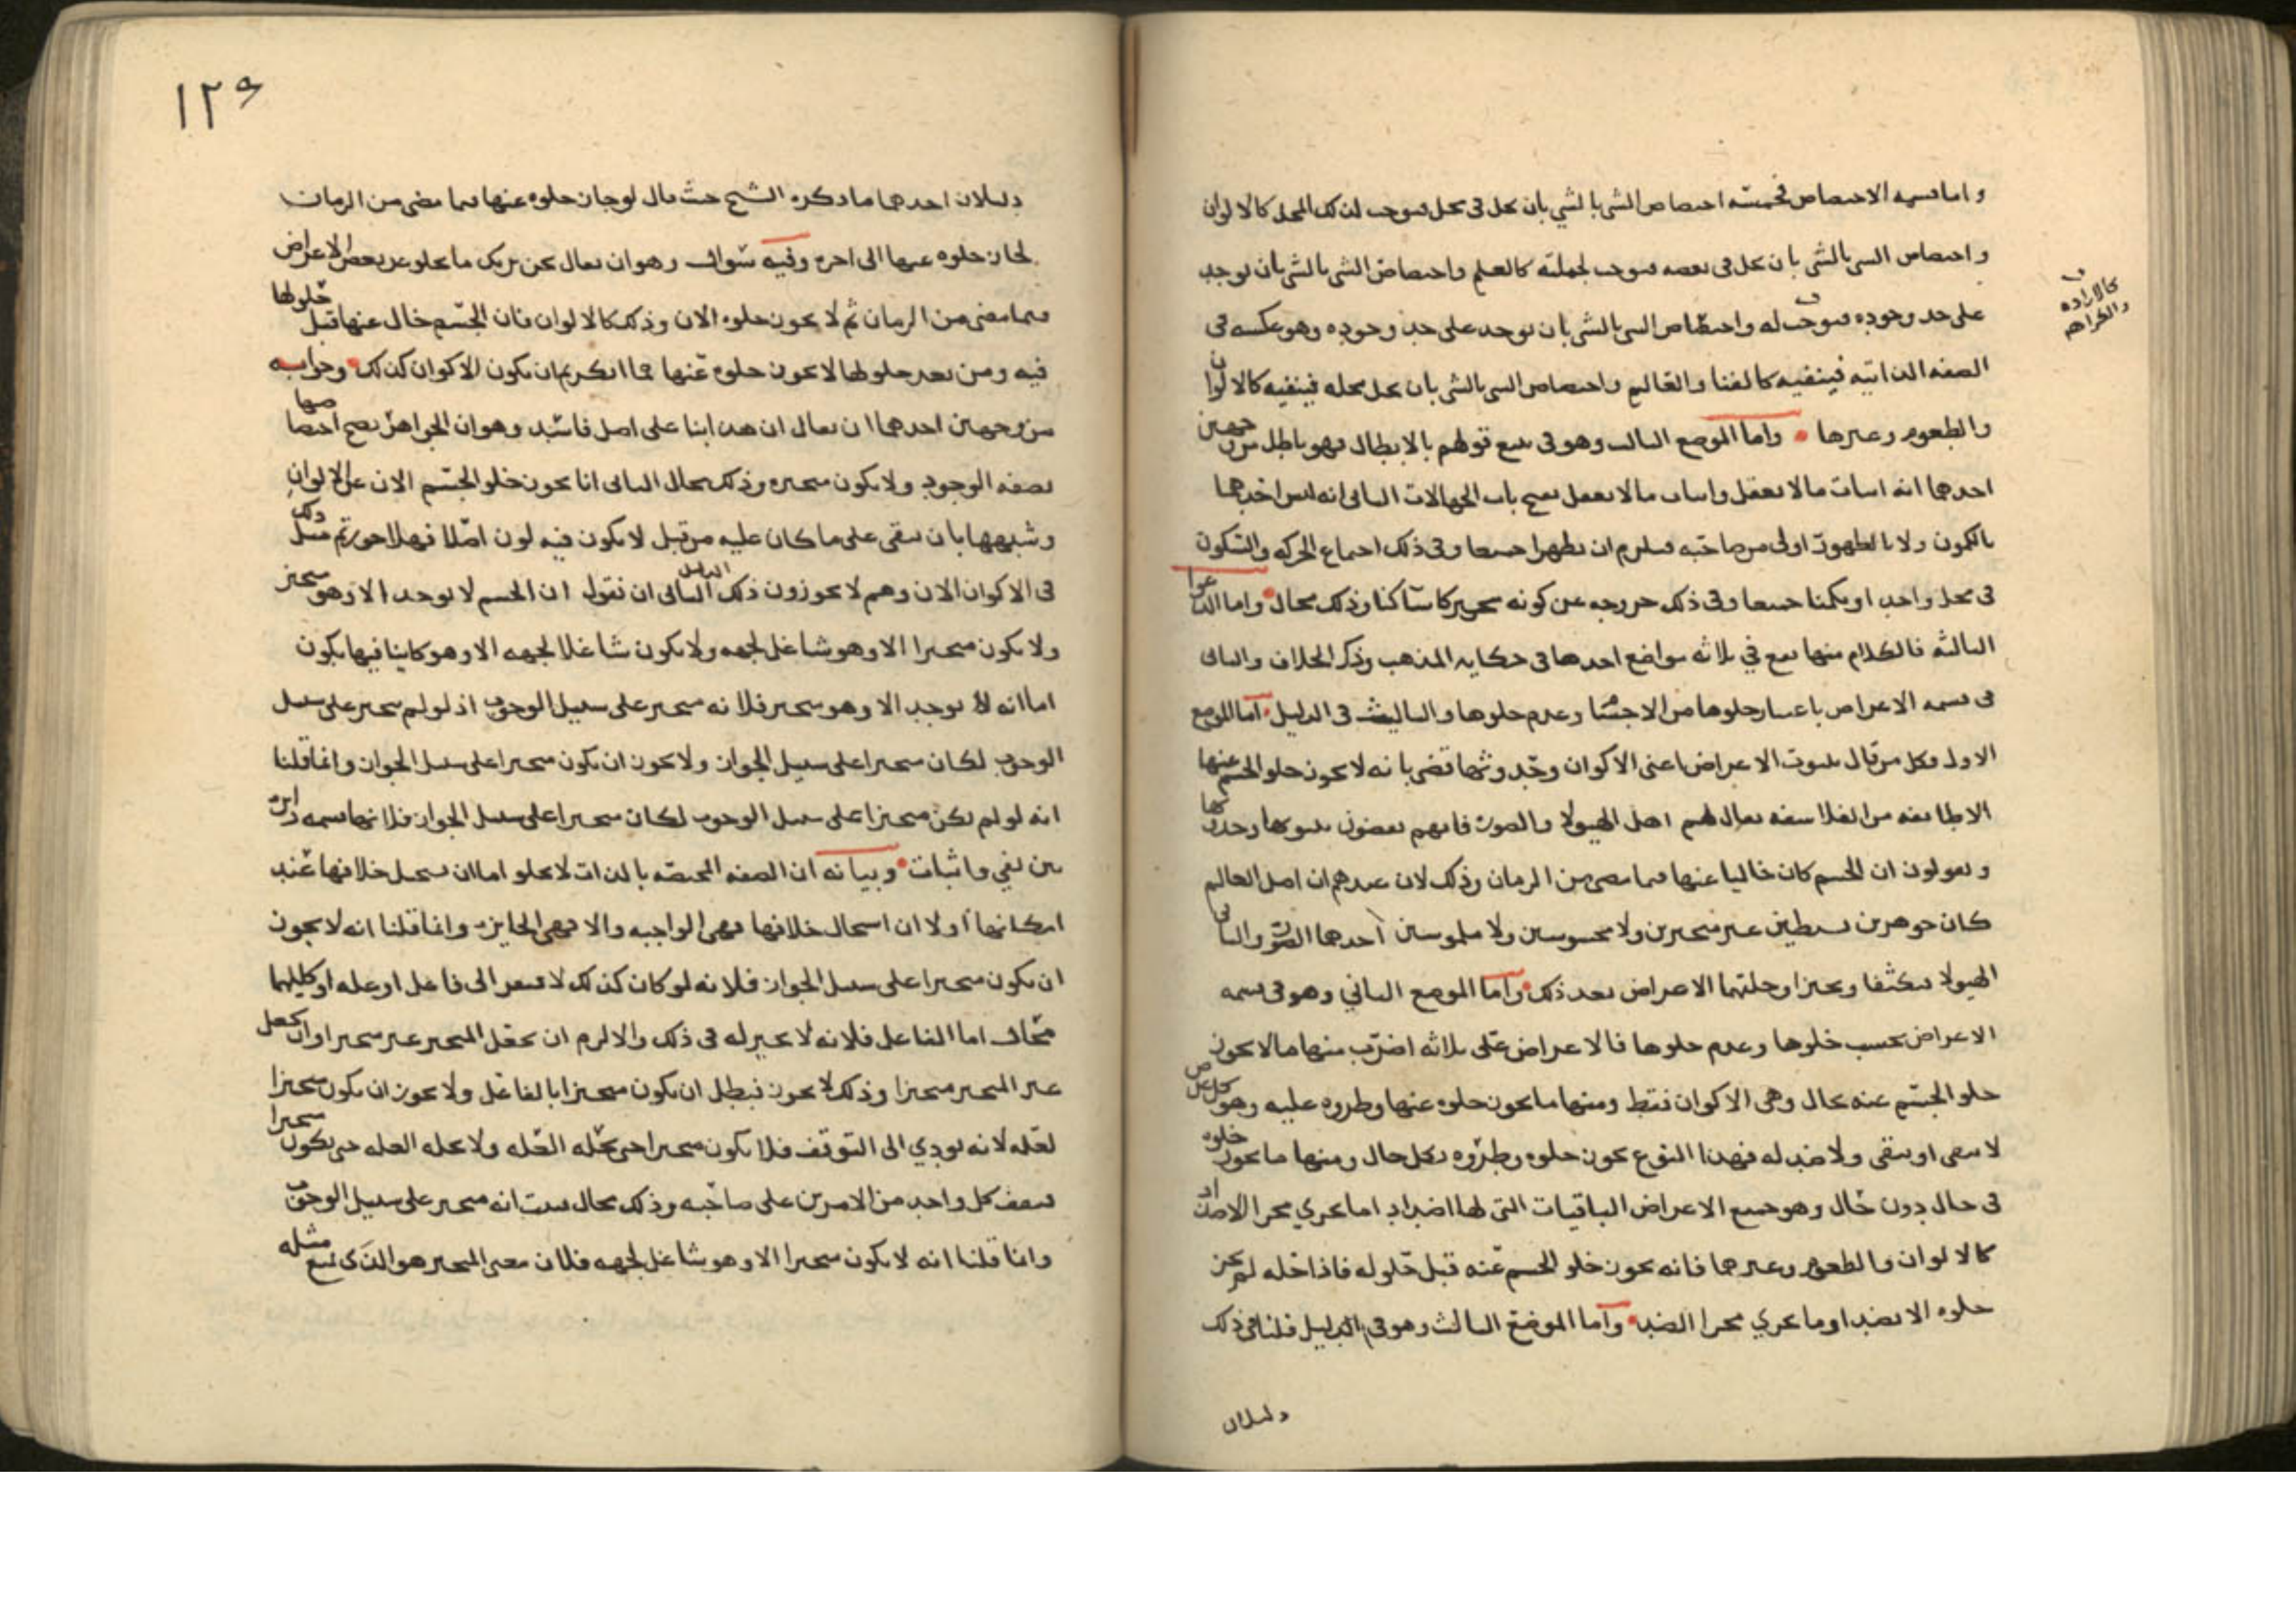 واما قسمه الاختصاص فخمسه اختصاص الشي بالشي بان يحل في محل فيوجب لذلك المحل كالالوان
واختصاص الشي بالشي بان يحل في بعضه فيوجب لجملته كالعلم واختصاص الشي بالشي بان يوجد
كالاراده والكراهه
على حد وجوده فيوجب له واختصاص الشي بالشي بان يوجد على حد وجوده وهو عكسه في
الصفه الذاتيه فينفيه كالفنا والعالم واختصاص الشي بالشي بان يحل محله فينفيه كالالوان
والطعوم وغيرها واما الموضع الثالث وهو في تتبع قولهم بالابطال فهو باطل من وجهين
احدهما انه اثبات ما لا يعقل واثبات ما لا يعقل يفتح باب الجهالات الثاني انه ليس احدهما
بالكمون ولا بالظهور اولى من صاحبه فيلزم ان يظهرا جميعا وفي ذلك اجتماع الحركه والسكون
في محل واحد او يكمنا جميعا وفي ذلك خروجه عن كونه متحركا ساكنا وذلك محال واما الدعوا
الثالثه فالكلام منها يقع في ثلاثه مواضع احدها في حكايه المذهب وذكر الخلاف والثاني
في قسمه الاعراض باعتبار خلوها من الاجسام وعدم خلوها والثالث في الدليل اما الموضع
الاول فكل من قال بثبوت الاعراض اعني الاكوان وحدوثها قضى بانه لا يجوز خلو الجسم عنها
الا طائفه من الفلاسفه يقال لهم اهل الهيولا والصوره فانهم يقضون بثبوتها وحدوثها
ويقولون ان الجسم كان خاليا عنها فيما مضى من الزمان وذلك لان عندهم ان اصل العالم
كان جوهرين بسيطين غير متحيزين ولا محسوسين ولا ملموسين احدهما الصوره والثاني
الهيولا فتكثفا وتحيزا وحلتهما الاعراض بعد ذلك واما الموضع الثاني وهو في قسمه
الاعراض بحسب خلوها وعدم خلوها فالاعراض على ثلاثه اضرب منها ما لا يجوز
خلو الجسم عنه بحال وهي الاكوان فقط ومنها ما يجوز خلوه عنها وطروه عليه وهو كل عرض
لا يبقى او يبقى ولا ضد له فهذا النوع يجوز خلوه وطروه بكل حال ومنها ما يجوز خلوه
في حال دون حال وهو جميع الاعراض الباقيات التي لها اضداد اما يجري مجرا الاضداد
كالالوان والطعوم وغيرهما فانه يجوز خلو الجسم عنه قبل حلوله فاذا حله لم يجز
خلوه الا بضد او ما يجري مجرا الضد واما الموضع الثالث وهو في الدليل فلنا في ذلك
دليلان
١٢٩
دليلان احدهما ما ذكره الشيخ حيث قال لو جاز خلوه عنها فيما مضى من الزمان
لجاز خلوه عنها الى اخره وفيه سوال وهو ان يقال نحن نريك ما يخلو عن بعض الاعراض
فيما مضى من الزمان ثم لا يجوز خلوه الان وذلك كالالوان فان الجسم خال عنها قبل حلولها
فيه ومن بعد حلولها لا يجوز خلوه عنها فما انكرتم ان يكون الاكوان كذلك وجوابه
من وجهين احدهما ان يقال ان هذا بنا على اصل فاسد وهو ان الجواهر يصح اختصاصها
بصفه الوجود ولا يكون متحيزه وذلك محال الثاني انا نجوز خلو الجسم الان عن الالوان
وشبهها بان يبقى على ما كان عليه من قبل لا يكون فيه لون اصلا فهلا جوزتم مثل ذلك
في الاكوان الان وهم لا يجوزون ذلك الدليل الثاني ان نقول ان الجسم لا يوجد الا وهو متحيز
ولا يكون متحيزا الا وهو شاغل لجهه ولا يكون شاغلا لجهه الا وهو كاينا فيها بكون
اما انه لا يوجد الا وهو متحيز فلانه متحيز على سبيل الوجوب اذ لو لم يتحيز على سبيل
الوجوب لكان متحيزا على سبيل الجواز ولا يجوز ان يكون متحيزا على سبيل الجواز وانما قلنا
انه لو لم يكن متحيزا على سبيل الوجوب لكان متحيزا على سبيل الجواز فلانها قسمه دايره
بين نفي واثبات وبيانه ان الصفه المختصه بالذات لا يخلو اما ان يستحيل خلافها عند
امكانها او لا ان استحال خلافها فهي الواجبه والا فهي الجايزه وانما قلنا انه لا يجوز
ان يكون متحيزا على سبيل الجواز فلانه لو كان كذلك لافتقر الى فاعل او عله او كليهما
محال اما الفاعل فلانه لا تخيير له في ذلك والا لزم ان يجعل المتحيز غير متحيز او ان يجعل
غير المتحيز متحيزا وذلك لا يجوز فبطل ان يكون متحيزا بالفاعل ولا يجوز ان يكون متحيزا
لعله لانه يودي الى التوقف فلا يكون متحيزا حتى تحله العله ولا تحله العله حتى يكون متحيزا
فيقف كل واحد من الامرين على صاحبه وذلك محال فثبت انه متحيز على سبيل الوجوب
وانما قلنا انه لا يكون متحيزا الا وهو شاغل لجهه فلان معنى المتحيز هو الذي يمنع مثله